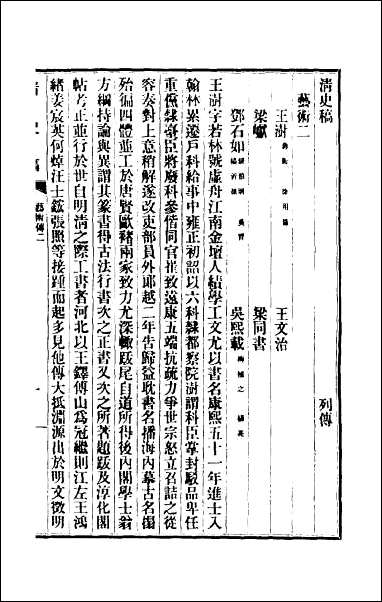 清史稿
列傳
藝術二
王澍 蔣衡 徐用錫 王文治
梁巘 梁同書
鄧石如 吳熙載 梅植之 楊亮
王澍字若林號虛舟江南金壇人績學工文尤以書名康熙五十一年進士入
翰林累遷戶科給事中雍正初詔以六科隸都察院澍謂科臣掌封駁品卑任
重儻隸臺臣將廢科參偕同官崔致遠康五端抗疏力爭世宗怒立召詰之從
容奏對上意稍解遂改吏部員外郎越二年告歸益耽書名播海內摹古名搨
殆徧四體並工於唐賢歐褚兩家致力尤深輒跋尾自道所得後內閣學士翁
方綱持論與異謂其篆書得古法行書次之正書又次之所著題跋及淳化閣
帖考正並行於世自明清之際工書者河北以王鐸傅山爲冠繼則江左王鴻
緒姜宸英何焯汪士鋐張照等接踵而起多見他傳大抵淵源出於明文徵明
藝術傳二
一